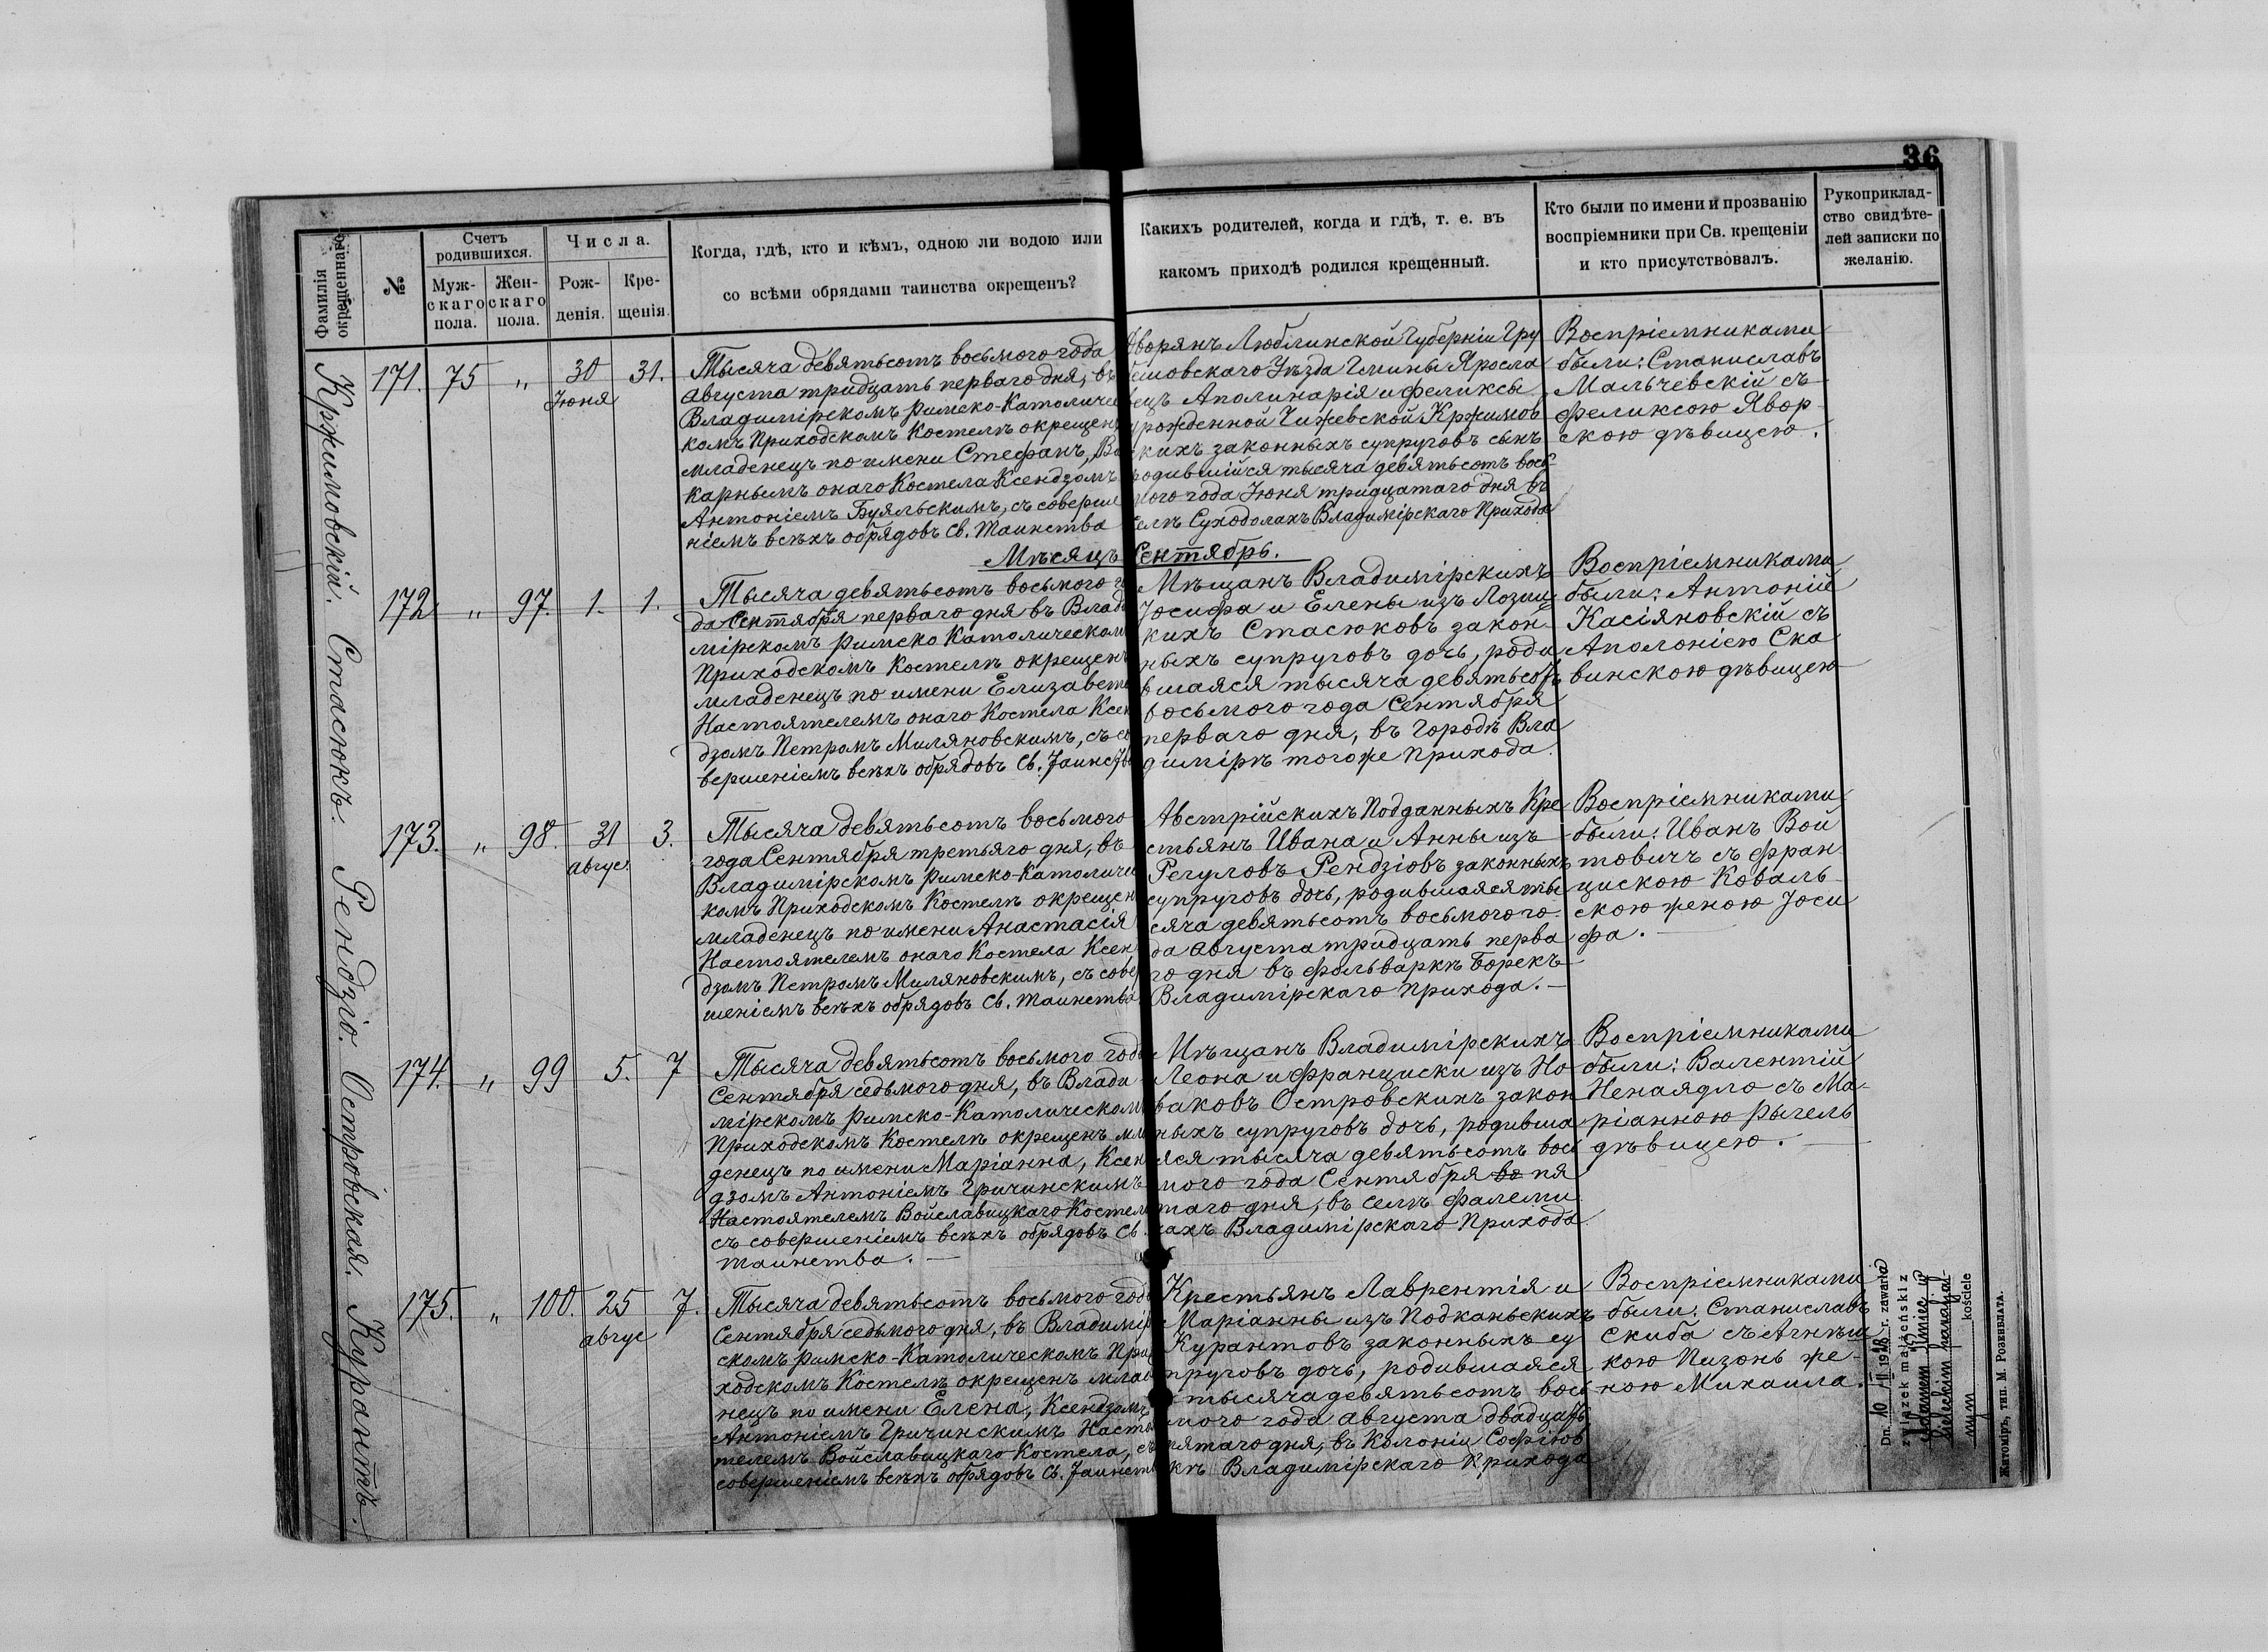 36
Фамилія окрещеннаго
№
Счетъ родившихся.
Мужскаго пола.
Женскаго пола.
Числа.
Рожденія.
Крещенія.
Когда, гдѣ, кто и кѣмъ, одною ли водою или
со всѣми обрядами таинства окрещенъ?
Какихъ родителей, когда и гдѣ, т. е. въ
какомъ приходѣ родился крещенный.
Кто были по имени и прозванію
воспріемники при Св. крещеніи
и кто присутствовалъ.
Рукоприклад-
ство свидѣте-
лей записки по
желанію.
Кржимовскій.
171. 75 " 30 Іюня 31.
Тысяча девятьсотъ восьмого года
Августа тридцать перваго дня, въ
Владимірскомъ Римско-Католичес
комъ Приходскомъ Костелѣ окрещенъ
младенецъ по имени Стефанъ, Ви
карнымъ онаго Костела Ксендзомъ
Антоніемъ Буяльскимъ, съ соверше
ніемъ всѣхъ обрядовъ Св. Таинства
Дворянъ Люблинской Губерніи Гру
бешовскаго Уѣзда Гмины Яросла
вецъ Аполинарія и Феликсы
урожденной Чижевской Кржимов
скихъ законныхъ супруговъ сынъ
родившійся тысяча девятьсотъ вось
мого года Іюня тридцатаго дня въ
селѣ Суходолахъ Владимірскаго Прихода
Воспріемниками
были: Станиславъ
Мальчевскій съ
Феликсою Явор
скою дѣвицею.
Мѣсяцъ Сентябрь.
Стасюкъ.
172 " 97. 1. 1.
Тысяча девятьсотъ восьмого го
да Сентября перваго дня въ Влади
мірскомъ Римско Католическомъ
Приходскомъ Костелѣ окрещенъ
младенецъ по имени Елизавета
Настоятелемъ онаго Костела Ксен
дзомъ Петромъ Миляновскимъ, съ со
вершеніемъ всѣхъ обрядовъ Св. Таинства
Мѣщанъ Владимірскихъ
Іосифа и Елены изъ Лозиц
кихъ Стасюковъ закон-
ныхъ супруговъ дочь, роди
вшаяся тысяча девятьсотъ
восьмого года Сентября
перваго дня, въ городѣ Вла
димірѣ того же Прихода.
Воспріемниками
были: Антоній
Касіяновскій съ
Аполоніею Ска
винскою дѣвицею
Рендзіо.
173. " 98. 31 Авгус. 3.
Тысяча девятьсотъ восьмого
года Сентября третьяго дня, въ
Владимірскомъ Римско-Католичес
комъ Приходскомъ Костелѣ окрещенъ
младенецъ по имени Анастасія
Настоятелемъ онаго Костела Ксен
дзомъ Петромъ Миляновскимъ, съ совер
шеніемъ всѣхъ обрядовъ Св. Таинства
Австрійскихъ Подданныхъ Кре
стьянъ Ивана и Анны изъ
Регуловъ Рендзіовъ законныхъ
супруговъ дочь, родившаяся ты
сяча девятьсотъ восьмого го-
да Августа тридцать перва
го дня въ фольваркѣ Борекъ
Владимірскаго Прихода.
Воспріемниками
были: Иванъ Вой
товичъ съ Фран
цискою Коваль
скою женою Іоси
фа.
Островская.
174. " 99 5. 7
Тысяча девятьсотъ восьмого года
Сентября седьмого дня, въ Влади
мірскомъ Римско-Католическомъ
Приходскомъ Костелѣ окрещенъ мла
денецъ по имени Маріанна, Ксен
дзомъ Антоніемъ Гричинскимъ
Настоятелемъ Войславицкаго Костела
съ совершеніемъ всѣхъ обрядовъ Св.
Таинства.
Мѣщанъ Владимірскихъ
Леона и Франциски изъ Но-
ваковъ Островскихъ закон
ныхъ супруговъ дочь, родивша
яся тысяча девятьсотъ вось
мого года Сентября во пя
таго дня, въ селѣ Фалеми
чахъ Владимірскаго Прихода.
Воспріемниками
были: Валентій
Ненаядло съ Ма-
ріанною Рычель
дѣвицею.
Курантъ.
175. " 100. 25 Авгус 7.
Тысяча девятьсотъ восьмого года
Сентября седьмого дня, въ Владимір
скомъ Римско-Католическомъ При
ходскомъ Костелѣ окрещенъ младе
нецъ по имени Елена, Ксендзомъ
Антоніемъ Гричинскимъ Настоя
телемъ Войславицкаго Костела, съ
совершеніемъ всѣхъ обрядовъ Св. Таинства
Крестьянъ Лаврентія и
Маріанны изъ Подканьскихъ
Курантовъ законныхъ су
пруговъ дочь, родившаяся
тысяча девятьсотъ вось
мого года Августа двадцать
пятаго дня, въ Колоніи Софіюв
кѣ Владимірскаго Прихода
Воспріемниками
были: Станиславъ
Скиба съ Агнѣш
кою Пизонь же-
ною Михаила.
Dn. 10 II 1928 r. zawarła
związek małżeński z
Adamem w
kieleckim parafjal-
nym kościele
Житоміръ, тип. М. Розенблата.